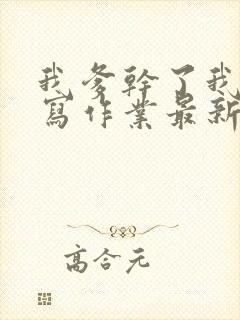 我爹幹了我
寫作業最新
高合元